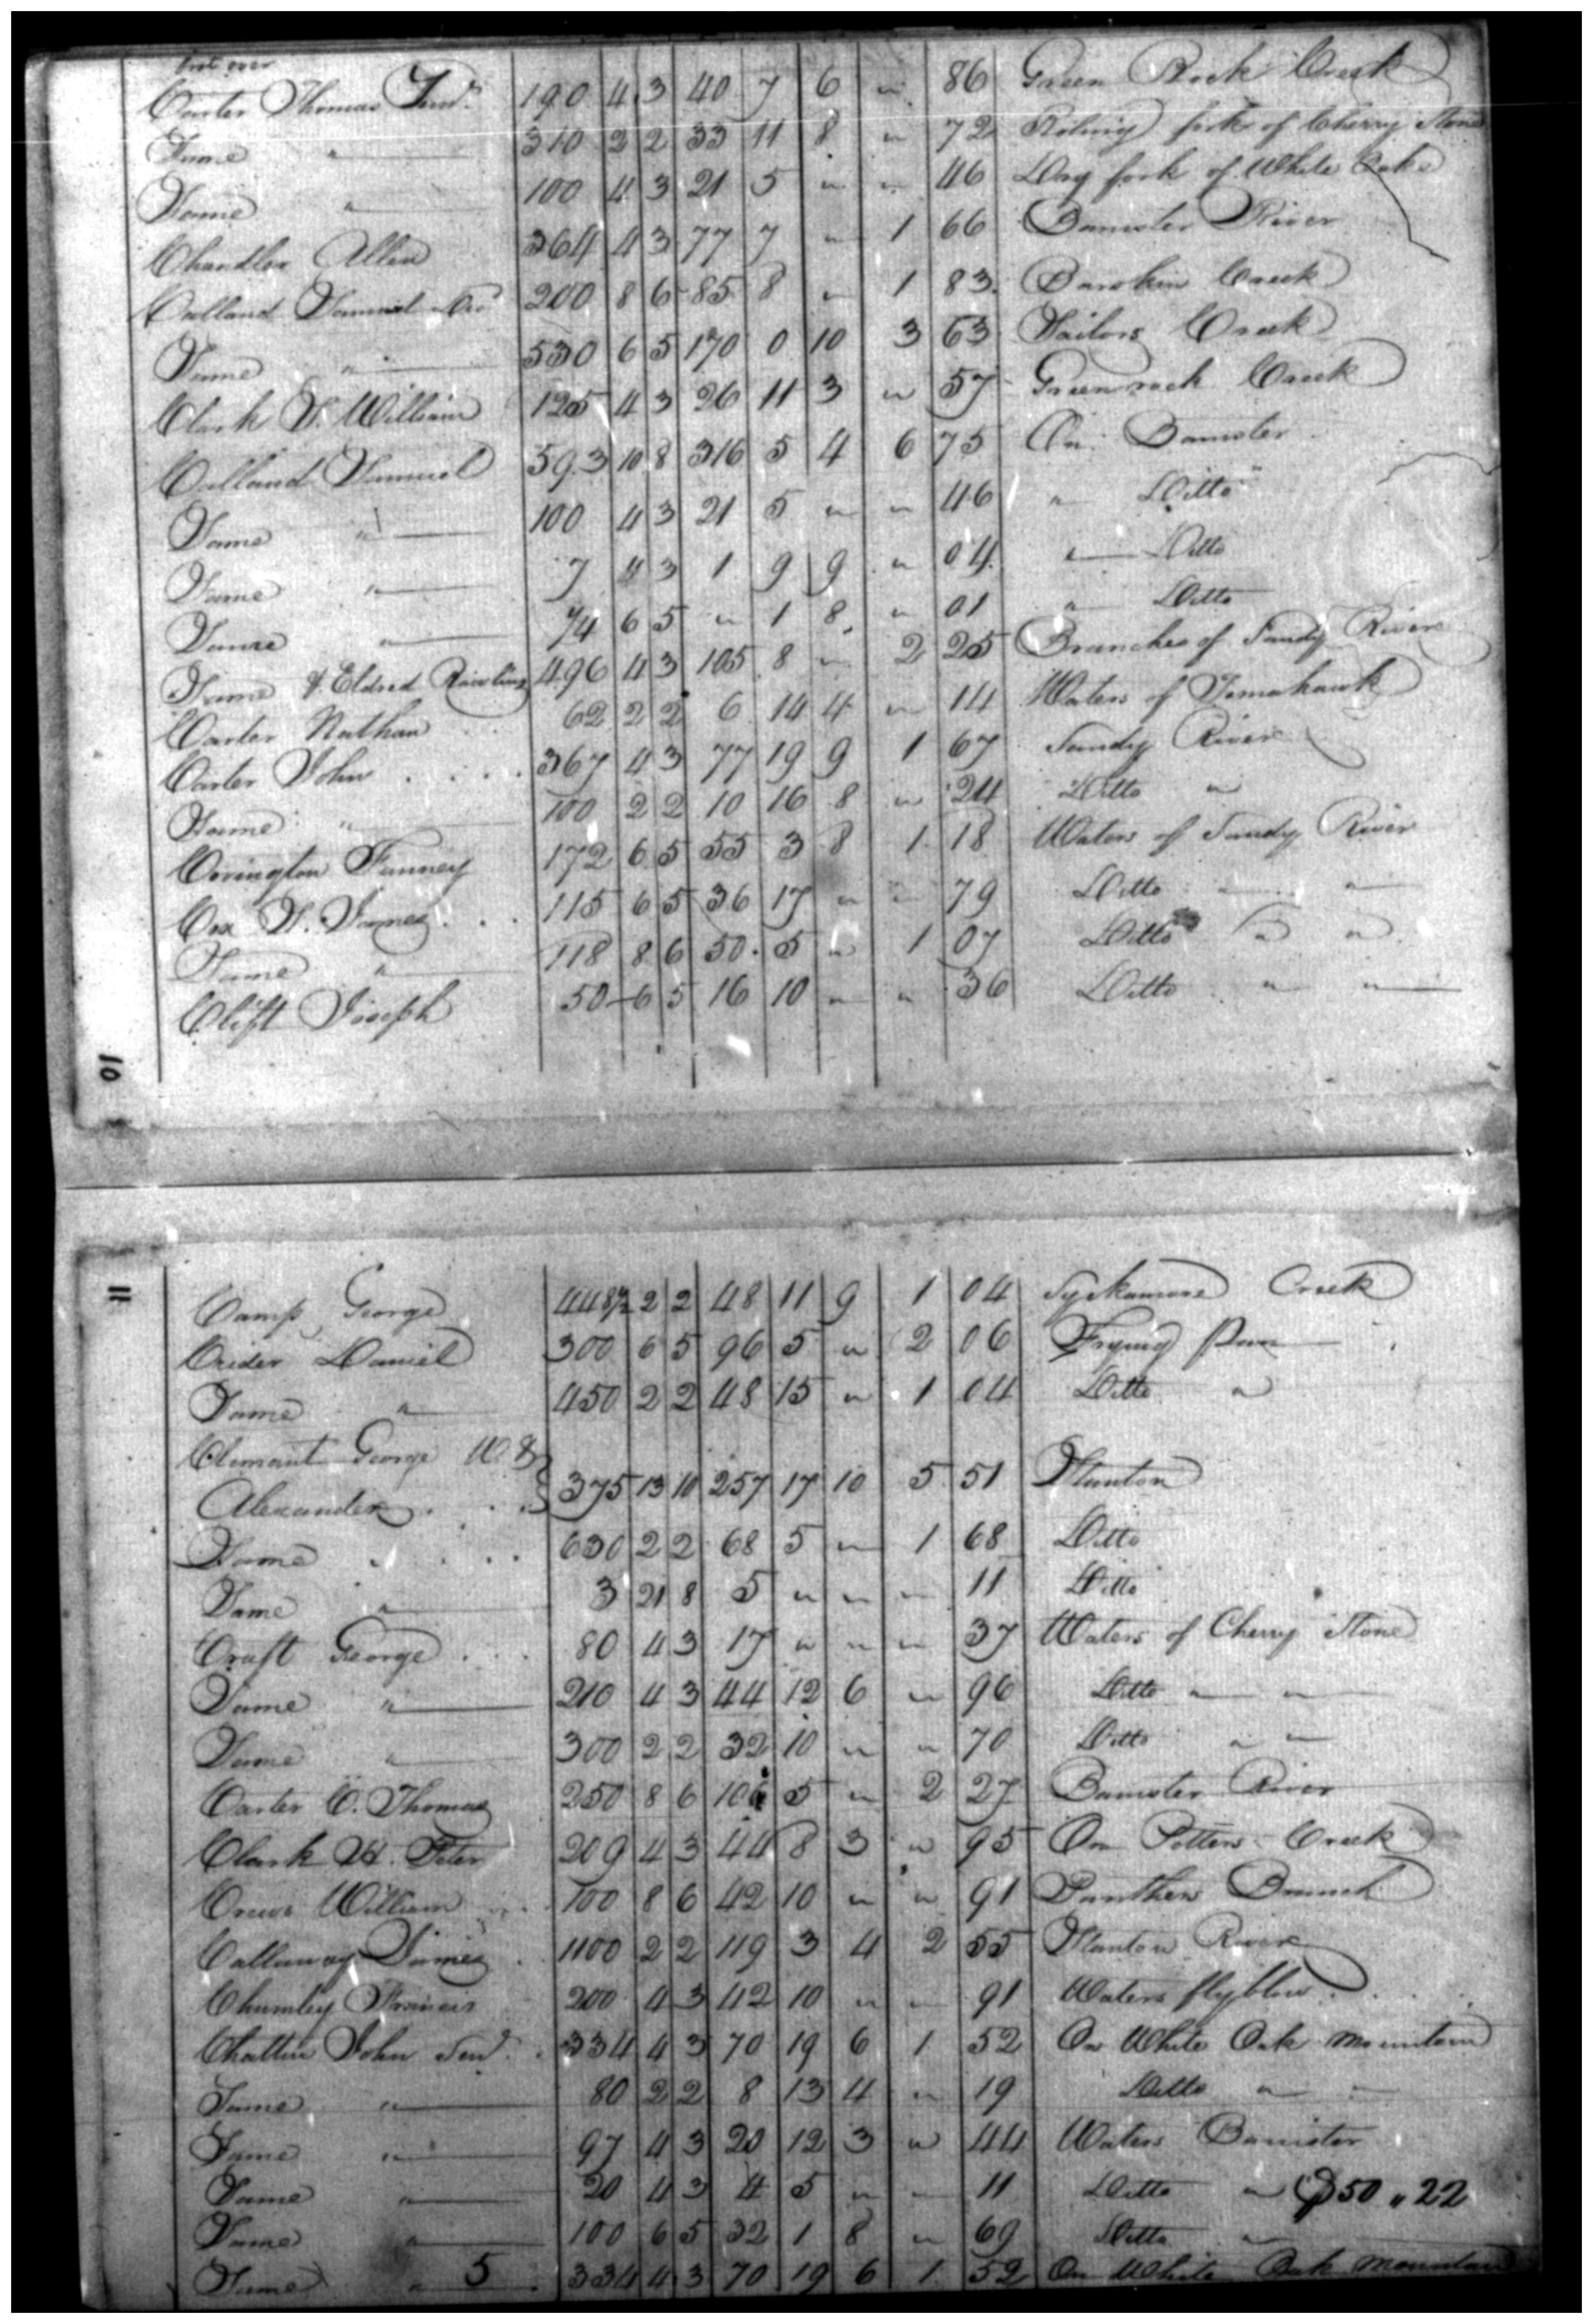 brot over
Carter Thomas Senr. 190 4 3 40 7 6 " 86 Green Rock Creek
Same " 310 2 2 33 11 8 " 72 Roling fork of Cherry Stone
Same " 100 4 3 21 5 " " 46 Dry fork of White Oak
Chandler Allen 364 4 3 77 7 " 1 66 Banister River
Calland Samuel 200 8 6 85 8 " 1 83 Bareskin Creek
Same " 530 6 5 170 0 10 3 63 Sailors Creek
Clark W. William 125 4 3 26 11 3 " 57 Greenrock Creek
Calland Samuel 593 10 8 316 5 4 6 75 On Banister
Same " 100 4 3 21 5 " " 46 " Ditto
Same " 7 4 3 1 9 9 " 04 " Ditto
Same " 1/4 6 5 " 1 8 " 01 " Ditto
Same & Eldred Rawlins 496 4 3 105 8 " 2 25 Branches of Sandy River
Carter Nathan 62 2 2 6 14 4 " 14 Waters of Tomahawk
Carter John 367 4 3 77 19 9 1 67 Sandy River
Same " 100 2 2 10 16 8 " 24 Ditto "
Covington Fanney 172 6 5 55 3 8 1 18 Waters of Sandy River
Cox W. James 115 6 5 36 17 " " 79 Ditto " "
Same " 118 8 6 50 5 " 1 07 Ditto " "
Clift Joseph 50 6 5 16 10 " " 36 Ditto " "
10
11
Camp George 448 1/2 2 2 48 11 9 1 04 Syckamore Creek
Crider Daniel 300 6 5 96 5 " 2 06 Frying Pan
Same " 450 2 2 48 15 " 1 04 Ditto "
Clemant George W. &
Alexander 375 13 10 257 17 10 5 51 Stanton
Same " 630 2 2 68 5 " 1 68 Ditto
Same " 3 21 8 5 " " " 11 Ditto
Craft George 80 4 3 17 " " " 37 Waters of Cherry Stone
Same " 210 4 3 44 12 6 " 96 Ditto " "
Same " 300 2 2 32 10 " " 70 Ditto " "
Carter C. Thomas 250 8 6 106 5 " 2 27 Banister River
Clark W. Peter 209 4 3 44 8 3 " 95 On Potters Creek
Crews William 100 8 6 42 10 " " 91 Panther Branch
Callaway James 1100 2 2 119 3 4 2 55 Stanton River
Chumley Francis 200 4 3 42 10 " " 91 Waters flyblow
Chattin John Senr. 334 4 3 70 19 6 1 52 On White Oak Mountain
Same " 80 2 2 8 13 4 " 19 Ditto " "
Same " 97 4 3 20 12 3 " 44 Waters Banister
Same " 20 4 3 4 5 " " 11 Ditto " $50 " 22
Same " 100 6 5 32 1 8 " 69 Ditto "
Same " 5 334 4 3 70 19 6 1 52 On White Oak Mountain